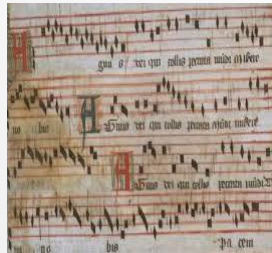 A gnu s dei qui tollis peccata mūdi mi sere
no bis Agnus dei qui tollis peccata mūdi misere
Agnus dei qui tollis peccata mūdi
no bis pa cem